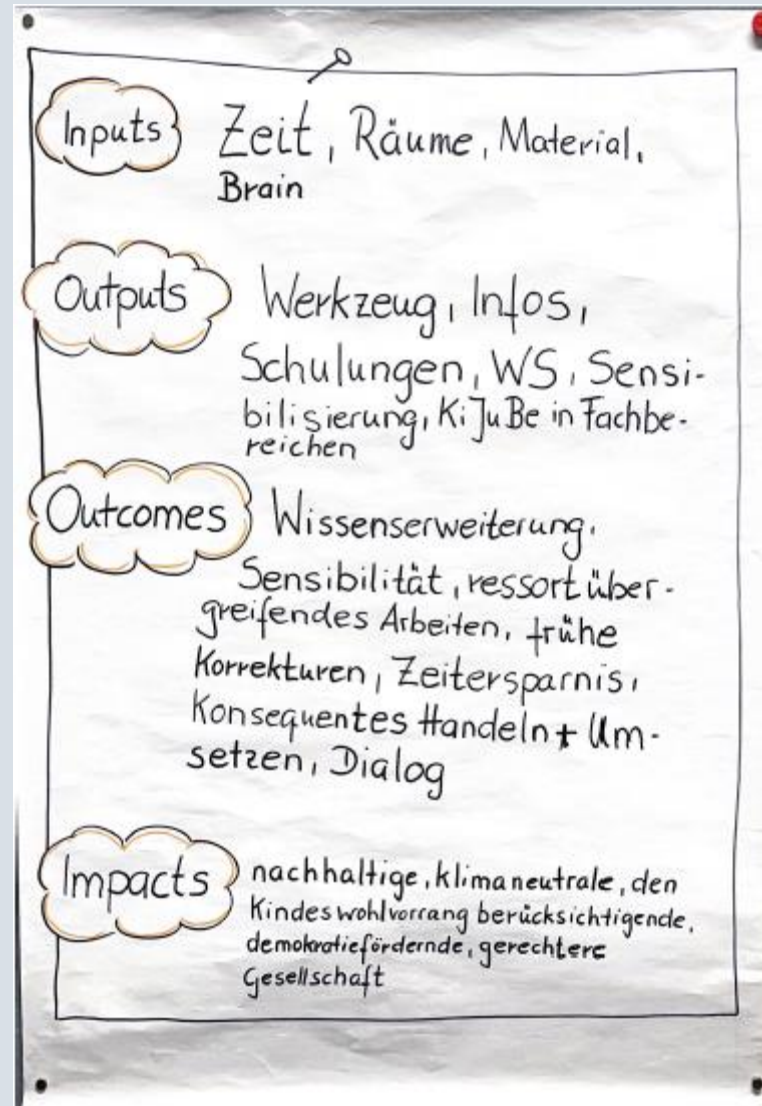 Inputs Zeit, Räume, Material,
Brain
Outputs Werkzeug, Infos,
Schulungen, WS, Sensi-
bilisierung, KiJuBe in Fachbe-
reichen
Outcomes Wissenserweiterung,
Sensibilität, ressortüber-
greifendes Arbeiten, frühe
Korrekturen, Zeitersparnis,
Konsequentes Handeln + Um-
setzen, Dialog
Impacts nachhaltige, klimaneutrale, den
Kindeswohlvorrang berücksichtigende,
demokratiefördernde, gerechtere
Gesellschaft